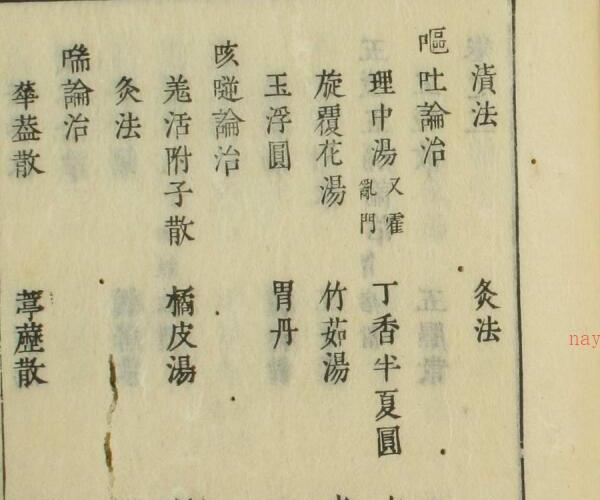 漬法　灸法
嘔吐論治
理中湯 又霍亂門　丁香半夏圓
旋覆花湯　竹茹湯
玉浮圓　胃丹
咳論治
羗活附子散　橘皮湯
灸法
喘論治
華蓋散　葶藶散
nay